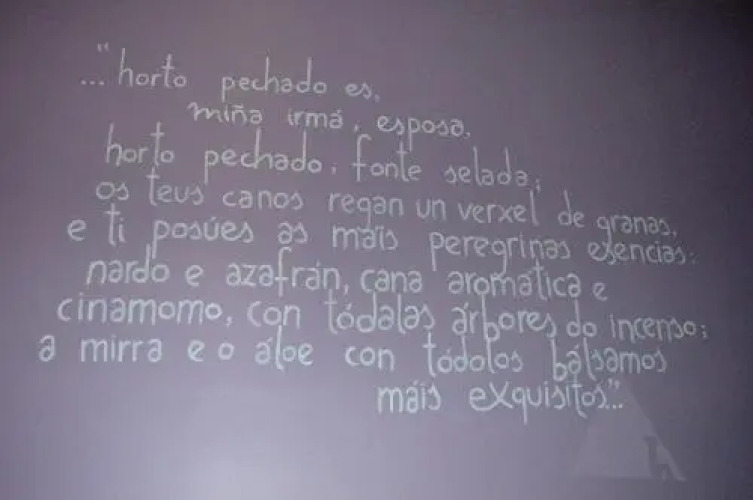 ..."horto pechado es,
miña irmá, esposa,
horto pechado, fonte selada;
os teus canos regan un verxel de granas,
e ti posúes as máis peregrinas esencias:
nardo e azafrán, cana aromática e
cinamomo, con tódalas árbores do incenso;
a mirra e o áloe con tódolos bálsamos
máis exquisitos"...